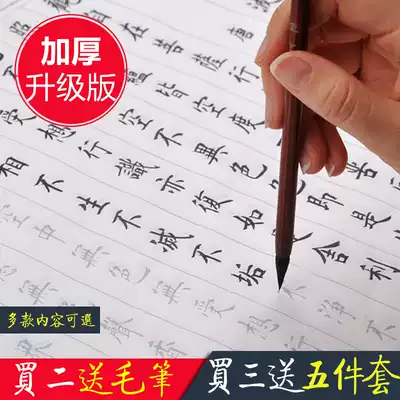 加厚
升级版
唐
在菩薩行
皆空度
空不異色色即是
受想行識亦復如是舍利
相不生不滅不垢不淨不
空中無色無受想行
多款内容可選
買二送毛筆
買三送五件套